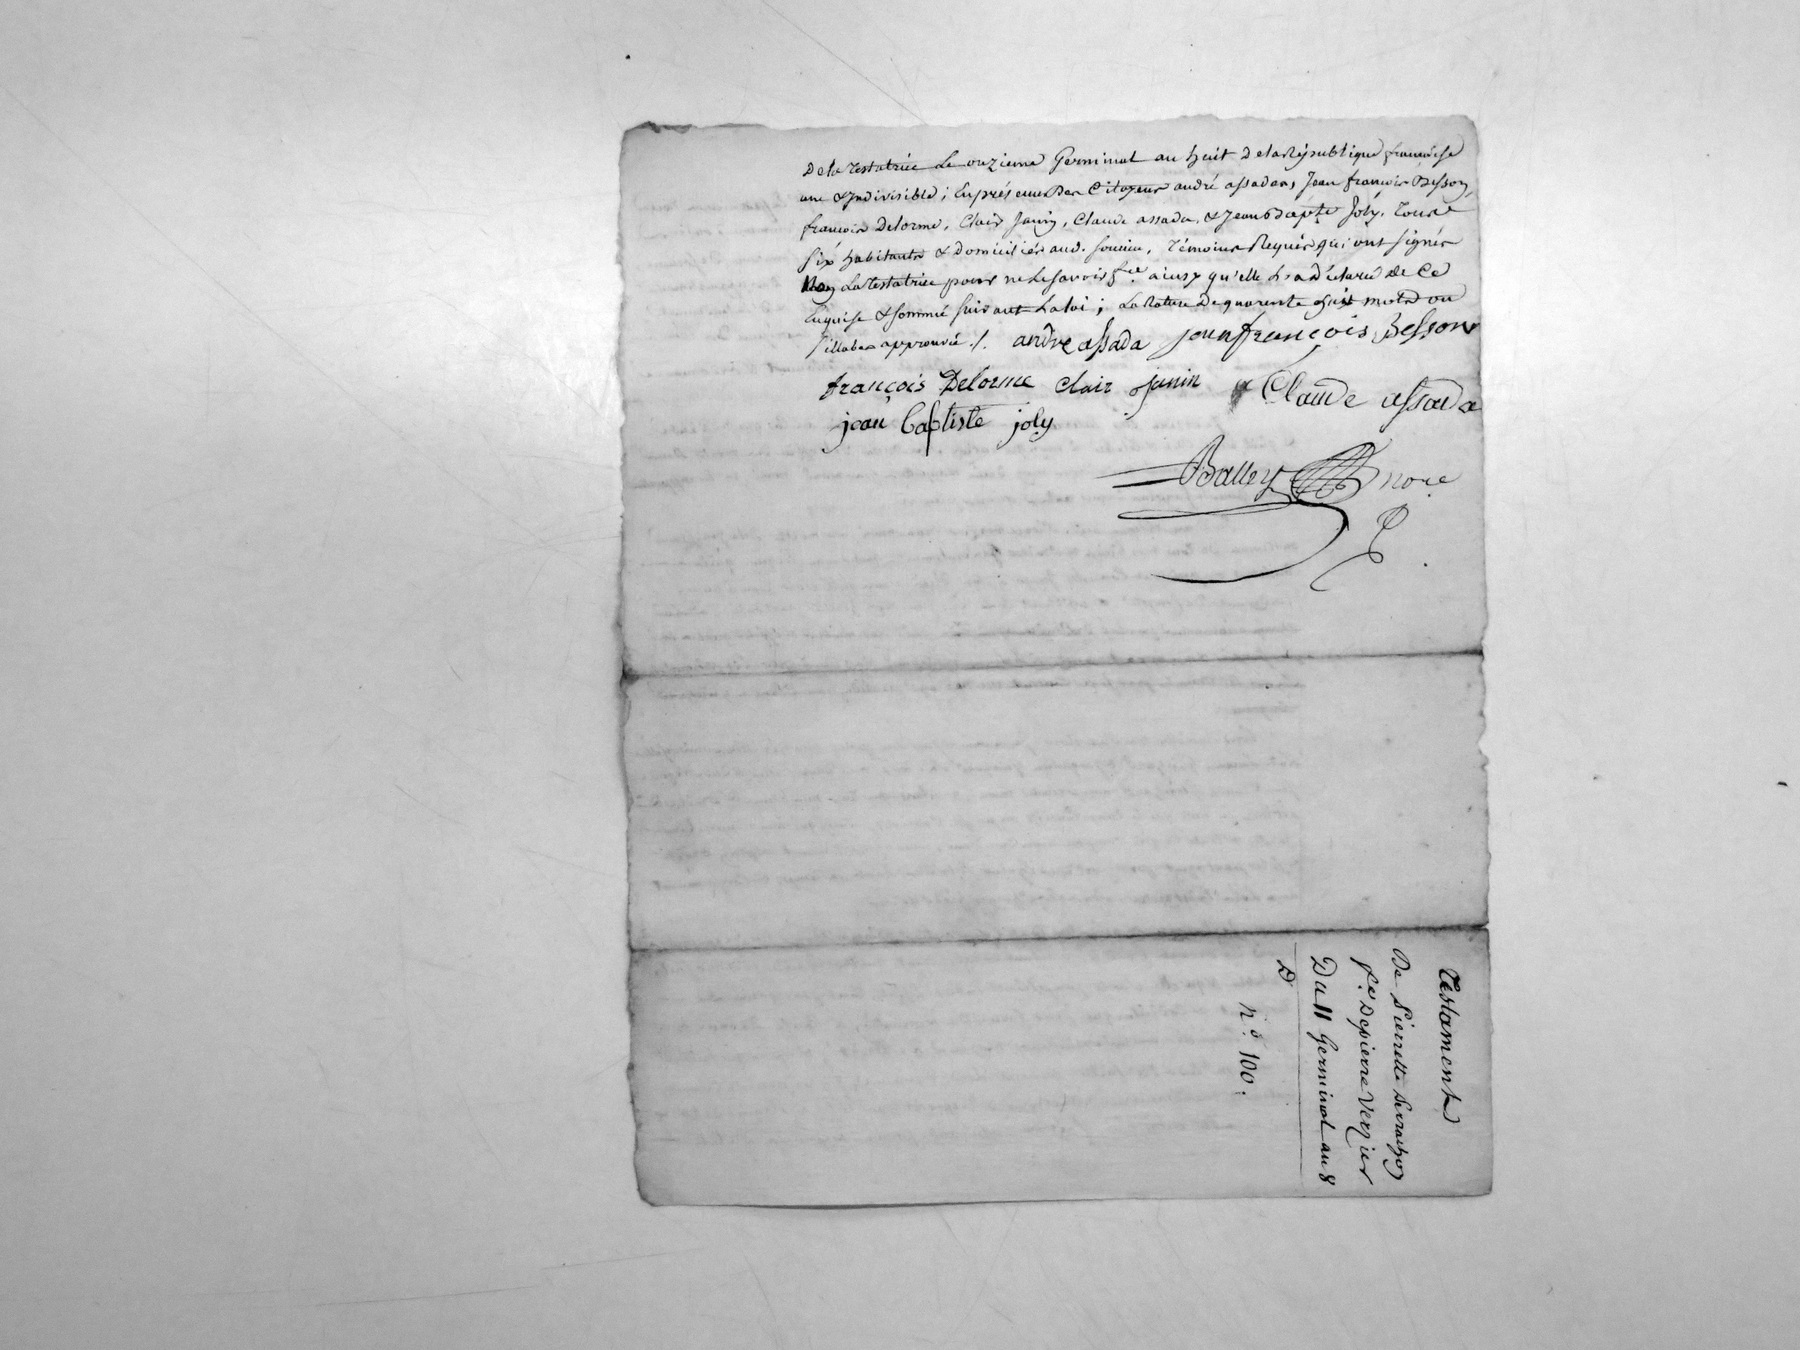 De la testatrice le onzieme Germinal an huit de la République française
une & Indivisible ; En présence Des Citoyens andré assadas, Jean françois Besson,
françois Delorme, Clair Janin, Claude assada, & Jean bapte Joly. Tous
six habitants & domiciliés aud. Soucieu, témoins Requis qui ont signés
Non La testatrice pour ne le savoir fre ainsy qu'elle l'a déclaré de ce
Enquise & sommée suivant la loi ; La Rature de quarente huit mots ou
sillabes approuvée ./. andre assada jean françois Besson
françois Delorme clair janin Claude assada
jean baptiste joly
Balley nore
Testament
De Pierrette Servachon
fe. De pierre Verzier
Du 11 Germinal an 8
D
n.o 100.